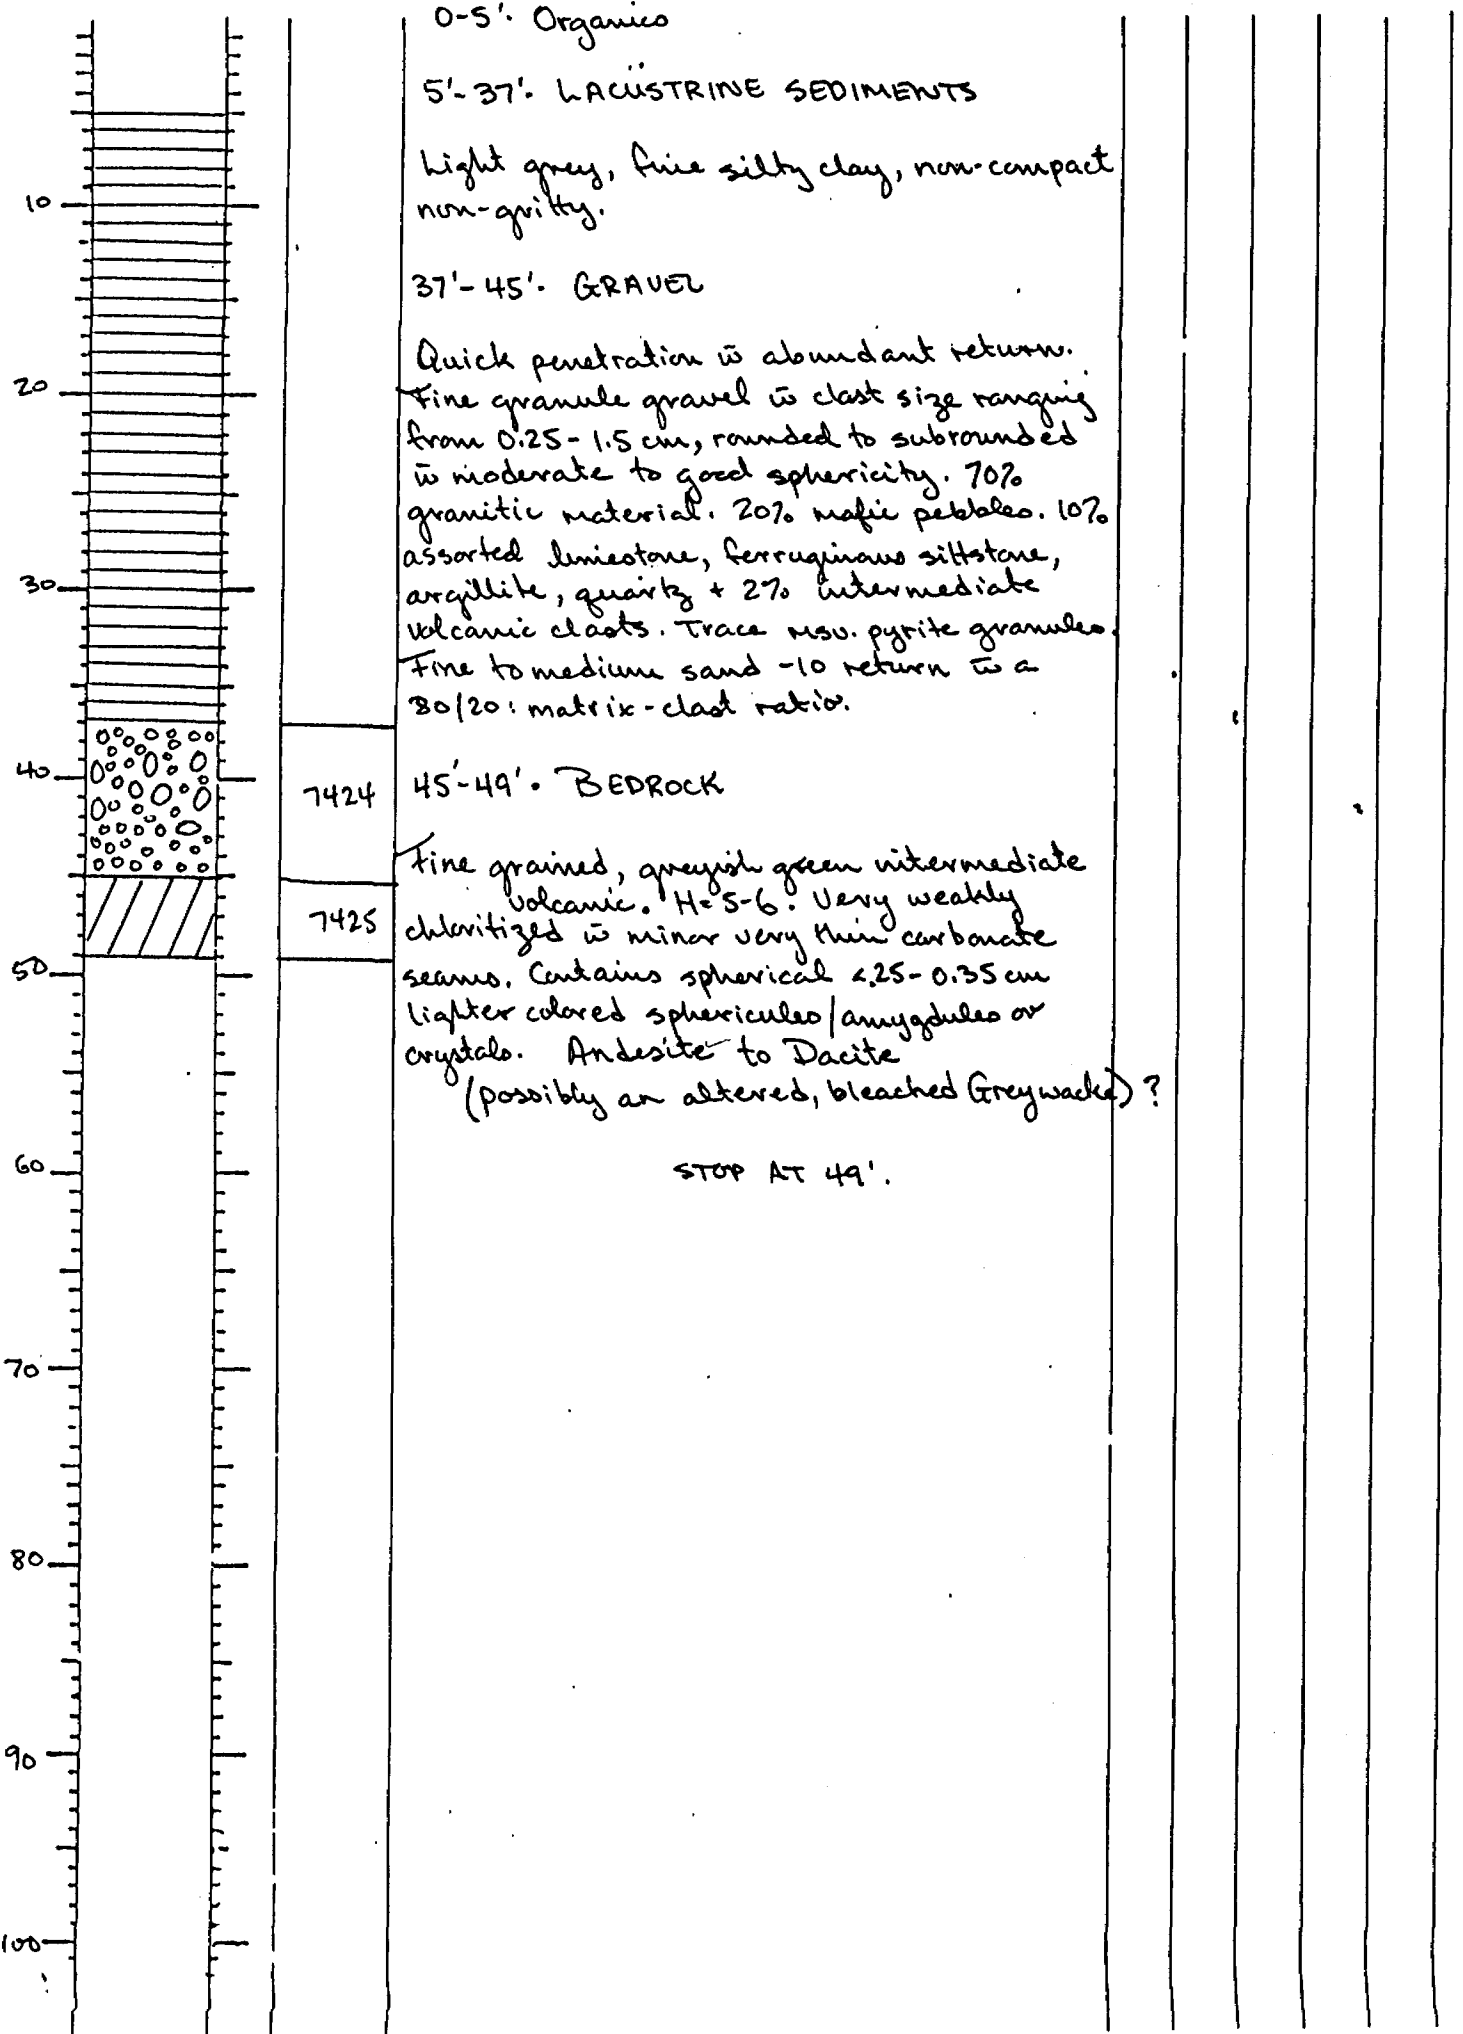 0-5': Organics
5'-37'. LACUSTRINE SEDIMENTS
Light grey, fine silty clay, non-compact
non-gritty.
10
37'-45'. GRAVEL
Quick penetration w̄ abundant return.
20
Fine granule gravel w̄ clast size ranging
from 0.25-1.5 cm, rounded to subrounded
w̄ moderate to good sphericity. 70%
granitic material. 20% mafic pebbles. 10%
assorted limestone, ferruginous siltstone,
30
argillite, quartz + 2% intermediate
volcanic clasts. Trace msv. pyrite granules.
Fine to medium sand -10 return w̄ a
80/20: matrix-clast ratio.
40
7424
45'-49'. BEDROCK
Fine grained, greyish green intermediate
volcanic. H=5-6. Very weakly
7425
chloritized w̄ minor very thin carbonate
50
seams. Contains spherical <.25-0.35 cm
lighter colored sphericules/amygdules or
crystals. Andesite to Dacite
(possibly an altered, bleached Greywacke)?
60
STOP AT 49'.
70
80
90
100